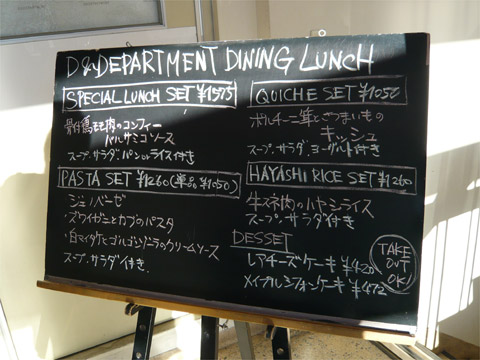 D&DEPARTMENT DINING LUNCH
SPECIAL LUNCH SET ¥1575
骨付鶏モモ肉のコンフィー
バルサミコソース
スープ.サラダ.パンorライス付き
PASTA SET ¥1260(単品¥1050)
・ジェノベーゼ
・ズワイガニとカブのパスタ
・白マイタケとゴルゴンゾーラのクリームソース
スープ.サラダ付き.
QUICHE SET ¥1050
ポルチーニ茸とさつまいもの
キッシュ
スープ.サラダ.ヨーグルト付き
HAYASHI RICE SET ¥1260
牛スネ肉のハヤシライス
スープ.サラダ付き
DESSET
レアチーズケーキ ¥420
メイプルシフォンケーキ ¥472
TAKE
OUT
OK!